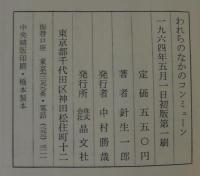 われらのなかのコンミューン
一九六四年五月一日初版第一刷
定価 五五〇円
著者 針生一郎
発行者 中村勝哉
発行所 株式会社 晶文社
東京都千代田区神田松住町十二
振替口座 東京
電話
中央精版印刷・橋本製本